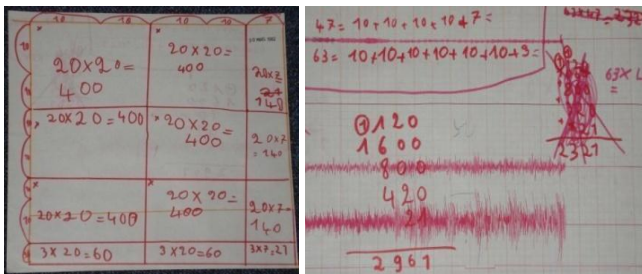 10 10 10 10 7
20×20=
400
20×20=
400
20×7
140
20×20=400
20×20=
400
20×7
=140
20×20=400
20×20=
400
20×7=
140
3×20=60
3×20=60
3×7,21
47= 10+10+10+10+7=
63= 10+10+10+10+10+10+3=
63×4
=
2321
120
1600
800
420
21
2961